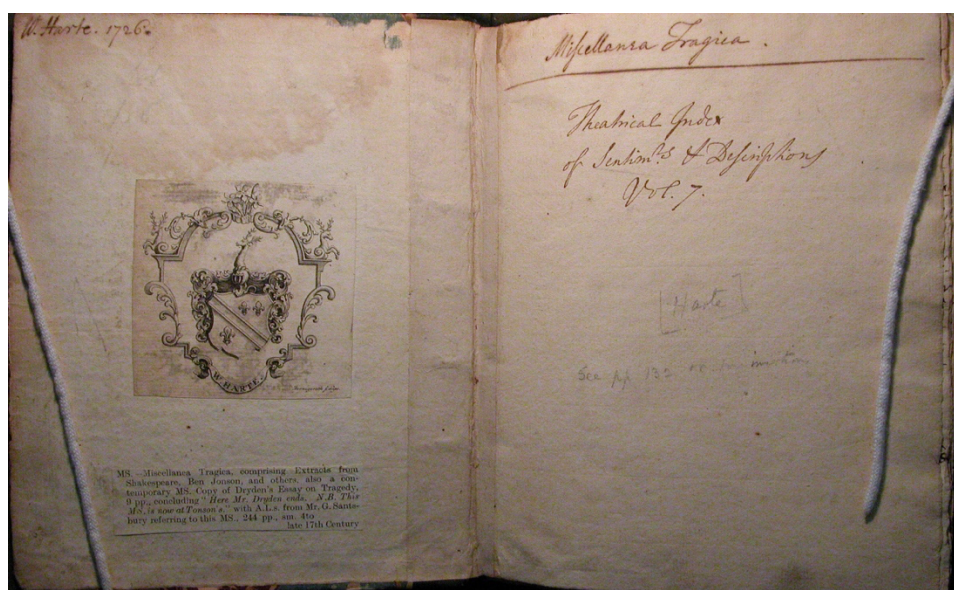 W. Harte. 1726.
W. HARTE.
MS.—Miscellanea Tragica, comprising Extracts from
Shakespeare, Ben Jonson, and others, also a con-
temporary MS. Copy of Dryden's Essay on Tragedy,
9 pp., concluding "Here Mr. Dryden ends. N.B. This
MS. is now at Tonson's." with A.L.s. from Mr. G. Sants-
bury referring to this MS., 244 pp., sm. 4to
late 17th Century
Miscellanea Tragica.
Theatrical Index
of Sentim:ts & Descriptions
Vol. 7.
[Harte]
See pp 132